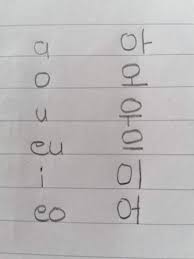 a 아
o 오
u 우
eu 으
i 이
eo 어